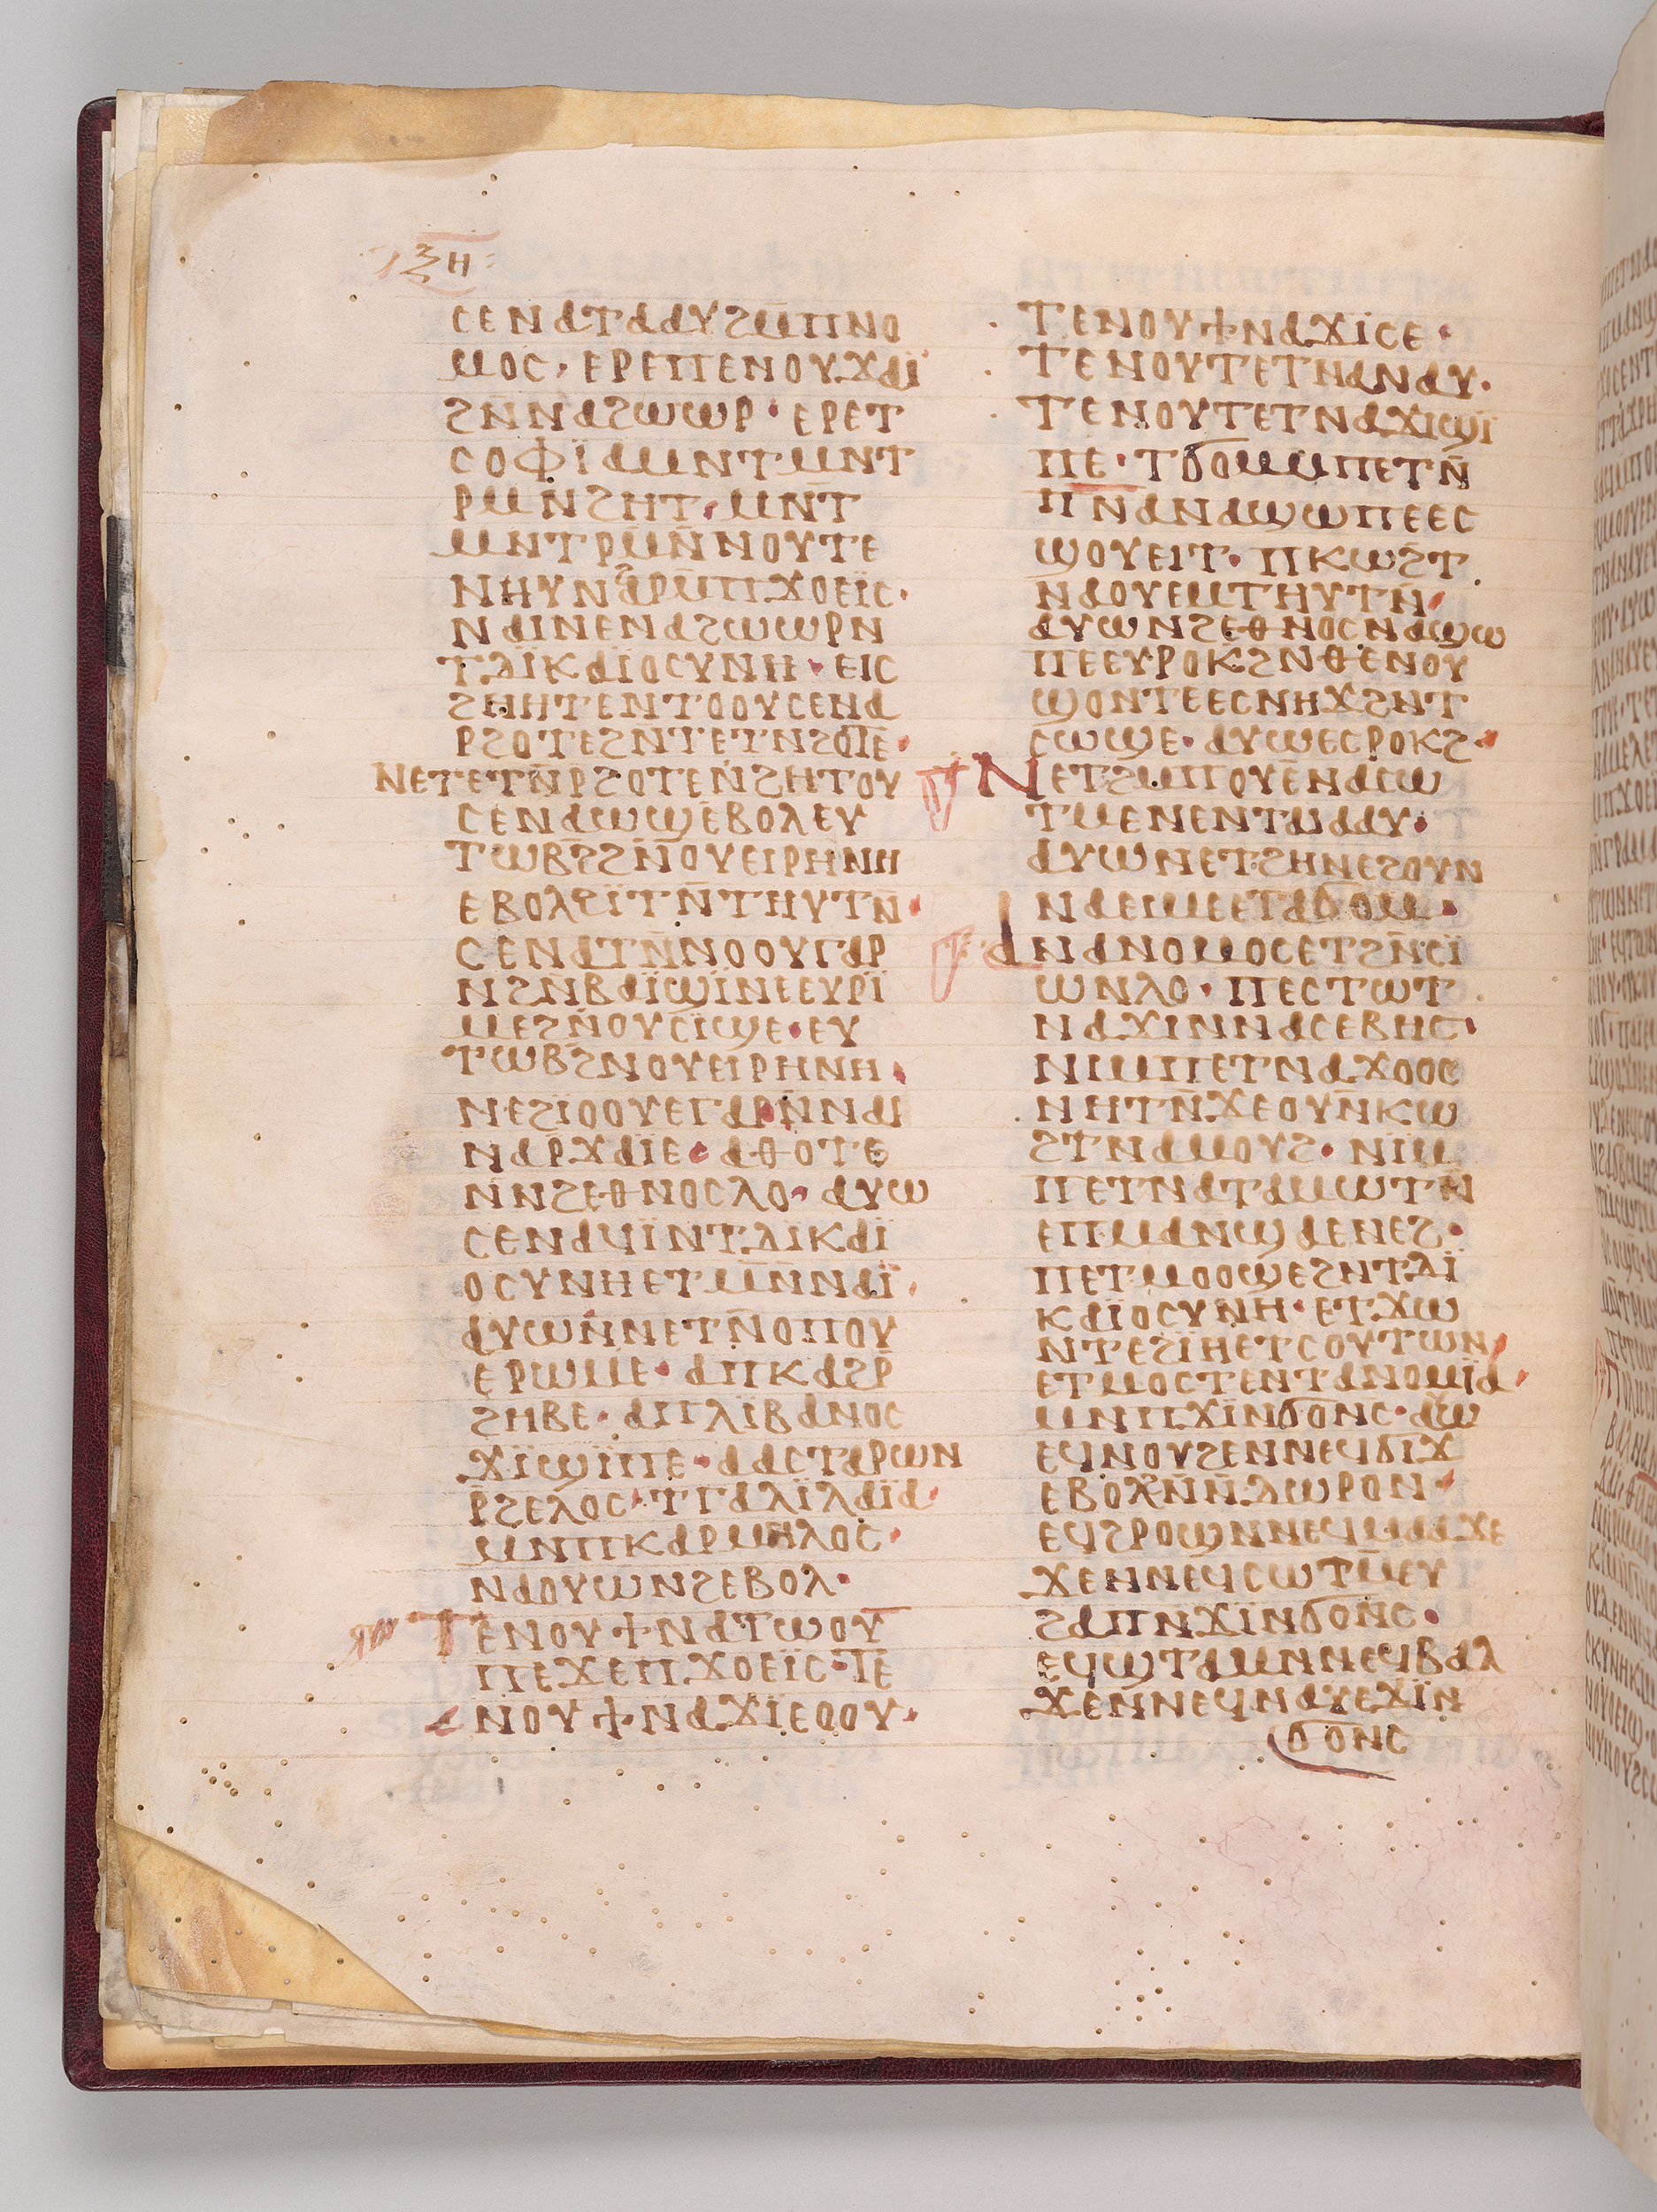 ⲝⲏ
ⲥⲉⲛⲁⲧⲁⲁⲩϩⲙ̄ⲡⲛⲟ
ⲙⲟⲥ· ⲉⲣⲉⲡⲉⲛⲟⲩϫⲁⲓ̈
ϩⲛ̄ⲛⲁϩⲱⲱⲣ· ⲉⲣⲉⲧ
ⲥⲟⲫⲓ̈ⲁⲙⲛⲧⲙⲛⲧ
ⲣⲙⲛ̄ϩⲏⲧ· ⲙⲛ̄ⲧ
ⲙⲛⲧⲣⲙⲛ̄ⲛⲟⲩⲧⲉ
ⲛⲏⲩⲛϩⲁⲣⲙ̄ⲡϫⲟⲉⲓ̈ⲥ·
ⲛⲁⲓⲛⲉⲛⲁϩⲱⲱⲣⲛ
ⲧⲇⲓ̈ⲕⲁⲓ̈ⲟⲥⲩⲛⲏ· ⲉⲓⲥ
ϩⲏⲏⲧⲉⲛⲧⲟⲟⲩⲥⲉⲛⲁ
ⲣϩⲟⲧⲉϩⲛⲧⲉⲧⲛϩⲟⲧⲉ·
ⲛⲉⲧⲉⲧⲛ̄ⲣϩⲟⲧⲉⲛ̄ϩⲏⲧⲟⲩ
ⲥⲉⲛⲁⲱϣⲉⲃⲟⲗⲉⲩ
ⲧⲱⲃϩϩⲛ̄ⲟⲩⲉⲓⲣⲏⲛⲏ
ⲉⲃⲟⲗϩⲓ̈ⲧⲛ̄ⲧⲏⲩⲧⲛ̄·
ⲥⲉⲛⲁⲧⲛ̄ⲛⲟⲟⲩⲅⲁⲣ
ⲛϩⲛ̄ⲃⲁⲓ̈ϣⲓ̈ⲛⲉⲉⲩⲣⲓ̈
ⲙⲉϩⲛ̄ⲟⲩⲥⲓ̈ϣⲉ· ⲉⲩ
ⲧⲱⲃϩⲛⲟⲩⲉⲓⲣⲏⲛⲏ·
ⲛⲉϩⲓⲟⲟⲩⲉⲅⲁⲣⲛ̄ⲛⲁⲓ
ⲛⲁⲣ̄ϫⲁⲓ̈ⲉ· ⲁⲑⲟⲧⲉ
ⲛ̄ⲛϩⲉⲑⲛⲟⲥⲗⲟ· ⲁⲩⲱ
ⲥⲉⲛⲁϥⲓ̈ⲛⲧⲇⲓⲕⲁⲓ̈
ⲟⲥⲩⲛⲏⲉⲧⲙ̄ⲛ̄ⲛⲁⲓ̈·
ⲁⲩⲱⲛ̄ⲛⲉⲧⲛ̄ⲟⲡⲟⲩ
ⲉⲣⲱⲙⲉ· ⲁⲡⲕⲁϩⲣ̄
ϩⲏⲃⲉ· ⲁⲡⲗⲓ̈ⲃⲁⲛⲟⲥ
ϫⲓ̈ϣⲓ̈ⲡⲉ· ⲁⲁⲥⲧⲁⲣⲱⲛ
ⲣ̄ϩⲉⲗⲟⲥ· ⲧⲅⲁⲗⲓ̈ⲗⲁⲓ̈ⲁ·
ⲙⲛⲡⲕⲁⲣⲙⲏⲗⲟⲥ·
ⲛⲁⲟⲩⲱⲛϩⲉⲃⲟⲗ·
ⲧⲉⲛⲟⲩϯⲛⲁⲧⲱⲟⲩ
ⲡⲉϫⲉⲡϫⲟⲉⲓ̈ⲥ· ⲧⲉ
ⲛⲟⲩϯⲛⲁϫⲓ̈ⲉⲟⲟⲩ·
ⲧⲉⲛⲟⲩϯⲛⲁϫⲓ̈ⲥⲉ·
ⲧⲉⲛⲟⲩⲧⲉⲧⲛⲁⲛⲁⲩ·
ⲧⲉⲛⲟⲩⲧⲉⲧⲛⲁϫⲓϣⲓ̈
ⲡⲉ· ⲧϭⲟⲙⲙⲡⲉⲧⲛ̄
ⲡ̄ⲛ̄ⲁⲛⲁϣⲱⲡⲉⲉⲥ
ϣⲟⲩⲉⲓⲧ· ⲡⲕⲱϩⲧ
ⲛⲁⲟⲩⲉⲙⲧⲏⲩⲧⲛ̄·
ⲁⲩⲱⲛϩⲉⲑⲛⲟⲥⲛⲁϣⲱ
ⲡⲉⲉⲩⲣⲟⲕϩⲛⲑⲉⲛⲟⲩ
ϣⲟⲛⲧⲉⲉⲥⲛⲏϫϩⲛⲧ
ⲥⲱϣⲉ· ⲁⲩⲱⲉⲥⲣⲟⲕϩ·
ⲛⲉⲧϩⲙⲡⲟⲩⲉⲛⲁⲥⲱ
ⲧⲙⲉⲛⲉⲛⲧⲁⲓⲁⲁⲩ·
ⲁⲩⲱⲛⲉⲧϩⲏⲛⲉϩⲟⲩⲛ
ⲛⲁⲉⲓⲙⲉⲉⲧⲁϭⲟⲙ·
ⲁⲛⲁⲛⲟⲙⲟⲥⲉⲧϩⲛ̄ⲥⲓ̈
ⲱⲛⲗⲟ· ⲡⲉⲥⲧⲱⲧ
ⲛⲁϫⲓⲛⲛⲁⲥⲉⲃⲏⲥ·
ⲛⲓⲙⲡⲉⲧⲛⲁϫⲟⲟⲥ
ⲛⲏⲧⲛ̄ϫⲉⲟⲩⲛ̄ⲕⲱ
ϩⲧⲛⲁⲙⲟⲩϩ· ⲛⲓⲙ
ⲡⲉⲧⲛⲁⲧⲁⲙⲱⲧⲛ
ⲉⲡⲙⲁⲛ̄ϣⲁⲉⲛⲉϩ·
ⲡⲉⲧⲙⲟⲟϣⲉϩⲛⲧⲇⲓ̈
ⲕⲁⲓ̈ⲟⲥⲩⲛⲏ· ⲉⲧϫⲱ
ⲛⲧⲉϩⲓ̈ⲏⲉⲧⲥⲟⲩⲧⲱⲛ·
ⲉⲧⲙⲟⲥⲧⲉⲛⲧⲁⲛⲟⲙⲓ̈ⲁ·
ⲙⲛⲡϫⲓ̈ⲛϭⲟⲛⲥ· ⲁⲩⲱ
ⲉϥⲛⲟⲩϩⲉⲛⲛⲉϥϭⲓ̈ϫ
ⲉⲃⲟⲗϩⲛ̄ⲛ̄ⲇⲱⲣⲟⲛ·
ⲉϥϩⲣⲟϣⲛⲛⲉϥⲙⲁⲁϫⲉ
ϫⲉⲛⲛⲉϥⲥⲱⲧⲙ̄ⲉⲩ
ϩⲁⲡⲛϫⲓ̈ⲛϭⲟⲛ̄ⲥ·
ⲉϥϣⲧⲁⲙⲛⲛⲉϥⲃⲁⲗ
ϫⲉⲛⲛⲉϥⲛⲁⲩⲉϫⲓ̈ⲛ
ϭⲟⲛⲥ